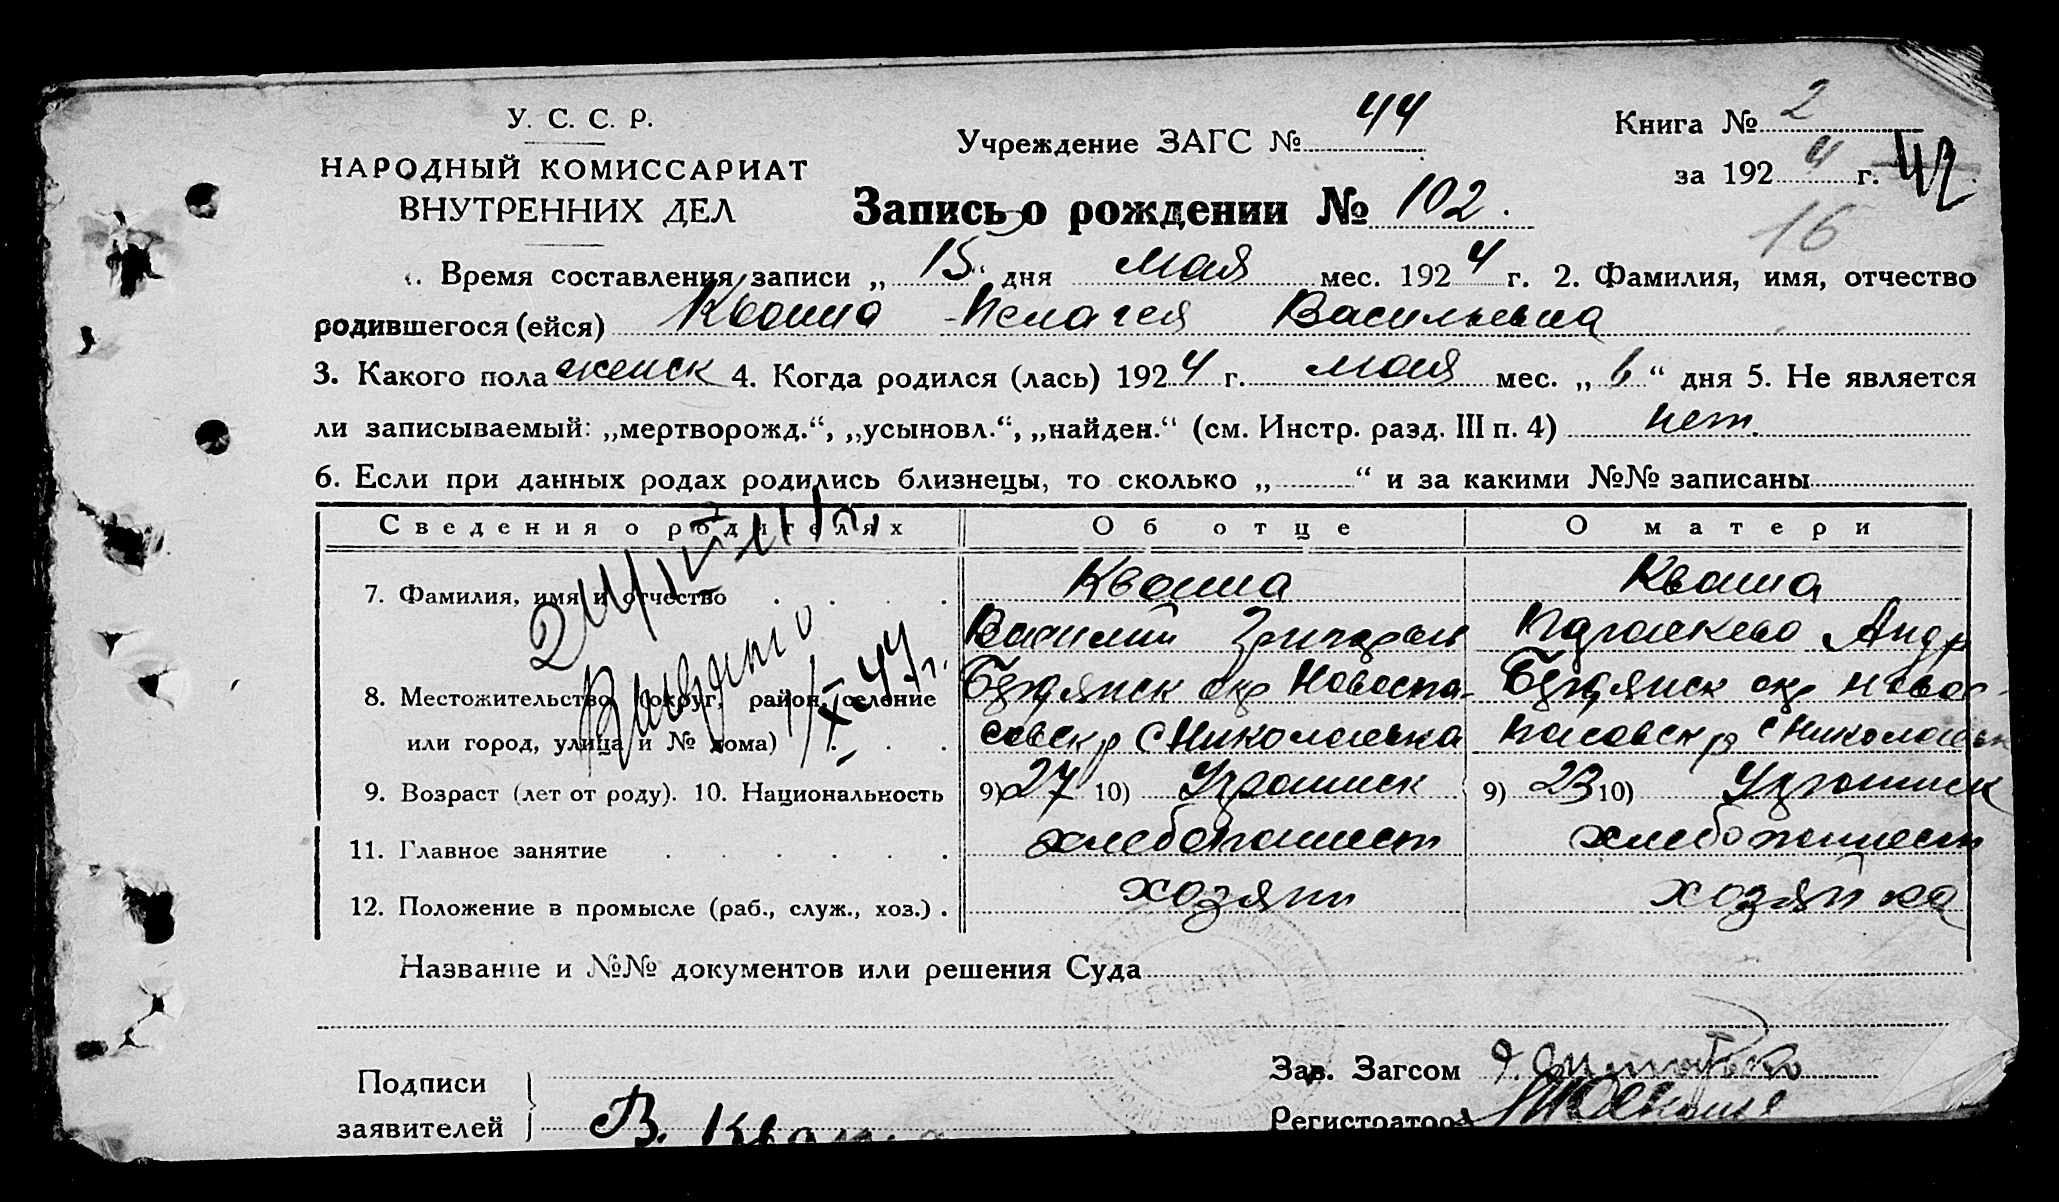 У. С. С. Р.
НАРОДНЫЙ КОМИССАРИАТ
ВНУТРЕННИХ ДЕЛ
Учреждение ЗАГС № 44
Книга № 2
за 1924 г. 42
16
Запись о рождении № 102.
Время составления записи „15“ дня мая мес. 1924 г. 2. Фамилия, имя, отчество
родившегося (ейся) Кваша Пелагея Васильевна
3. Какого пола женск 4. Когда родился (лась) 1924 г. мая мес. „6“ дня 5. Не является
ли записываемый: „мертворожд.“, „усыновл.“, „найден.“ (см. Инстр. разд. III п. 4) нет.
6. Если при данных родах родились близнецы, то сколько „ “ и за какими №№ записаны
Сведения о родителях Об отце О матери
7. Фамилия, имя и отчество Кваша Кваша
Василий Григорьев Парасковья Андр
8. Местожительство (округ, район, селение Бердянск окр Новоспа- Бердянск окр Новос-
или город, улица и № дома) совск р с Николаевка пасовск р с Николаевк
9. Возраст (лет от роду). 10. Национальность 9) 27 10) Украинск 9) 23 10) Украинск
11. Главное занятие хлебопашест хлебопашест
12. Положение в промысле (раб., служ., хоз.) хозяин хозяйка
Название и №№ документов или решения Суда
Подписи
заявителей В. Кваша
Зав. Загсом
Регистратор